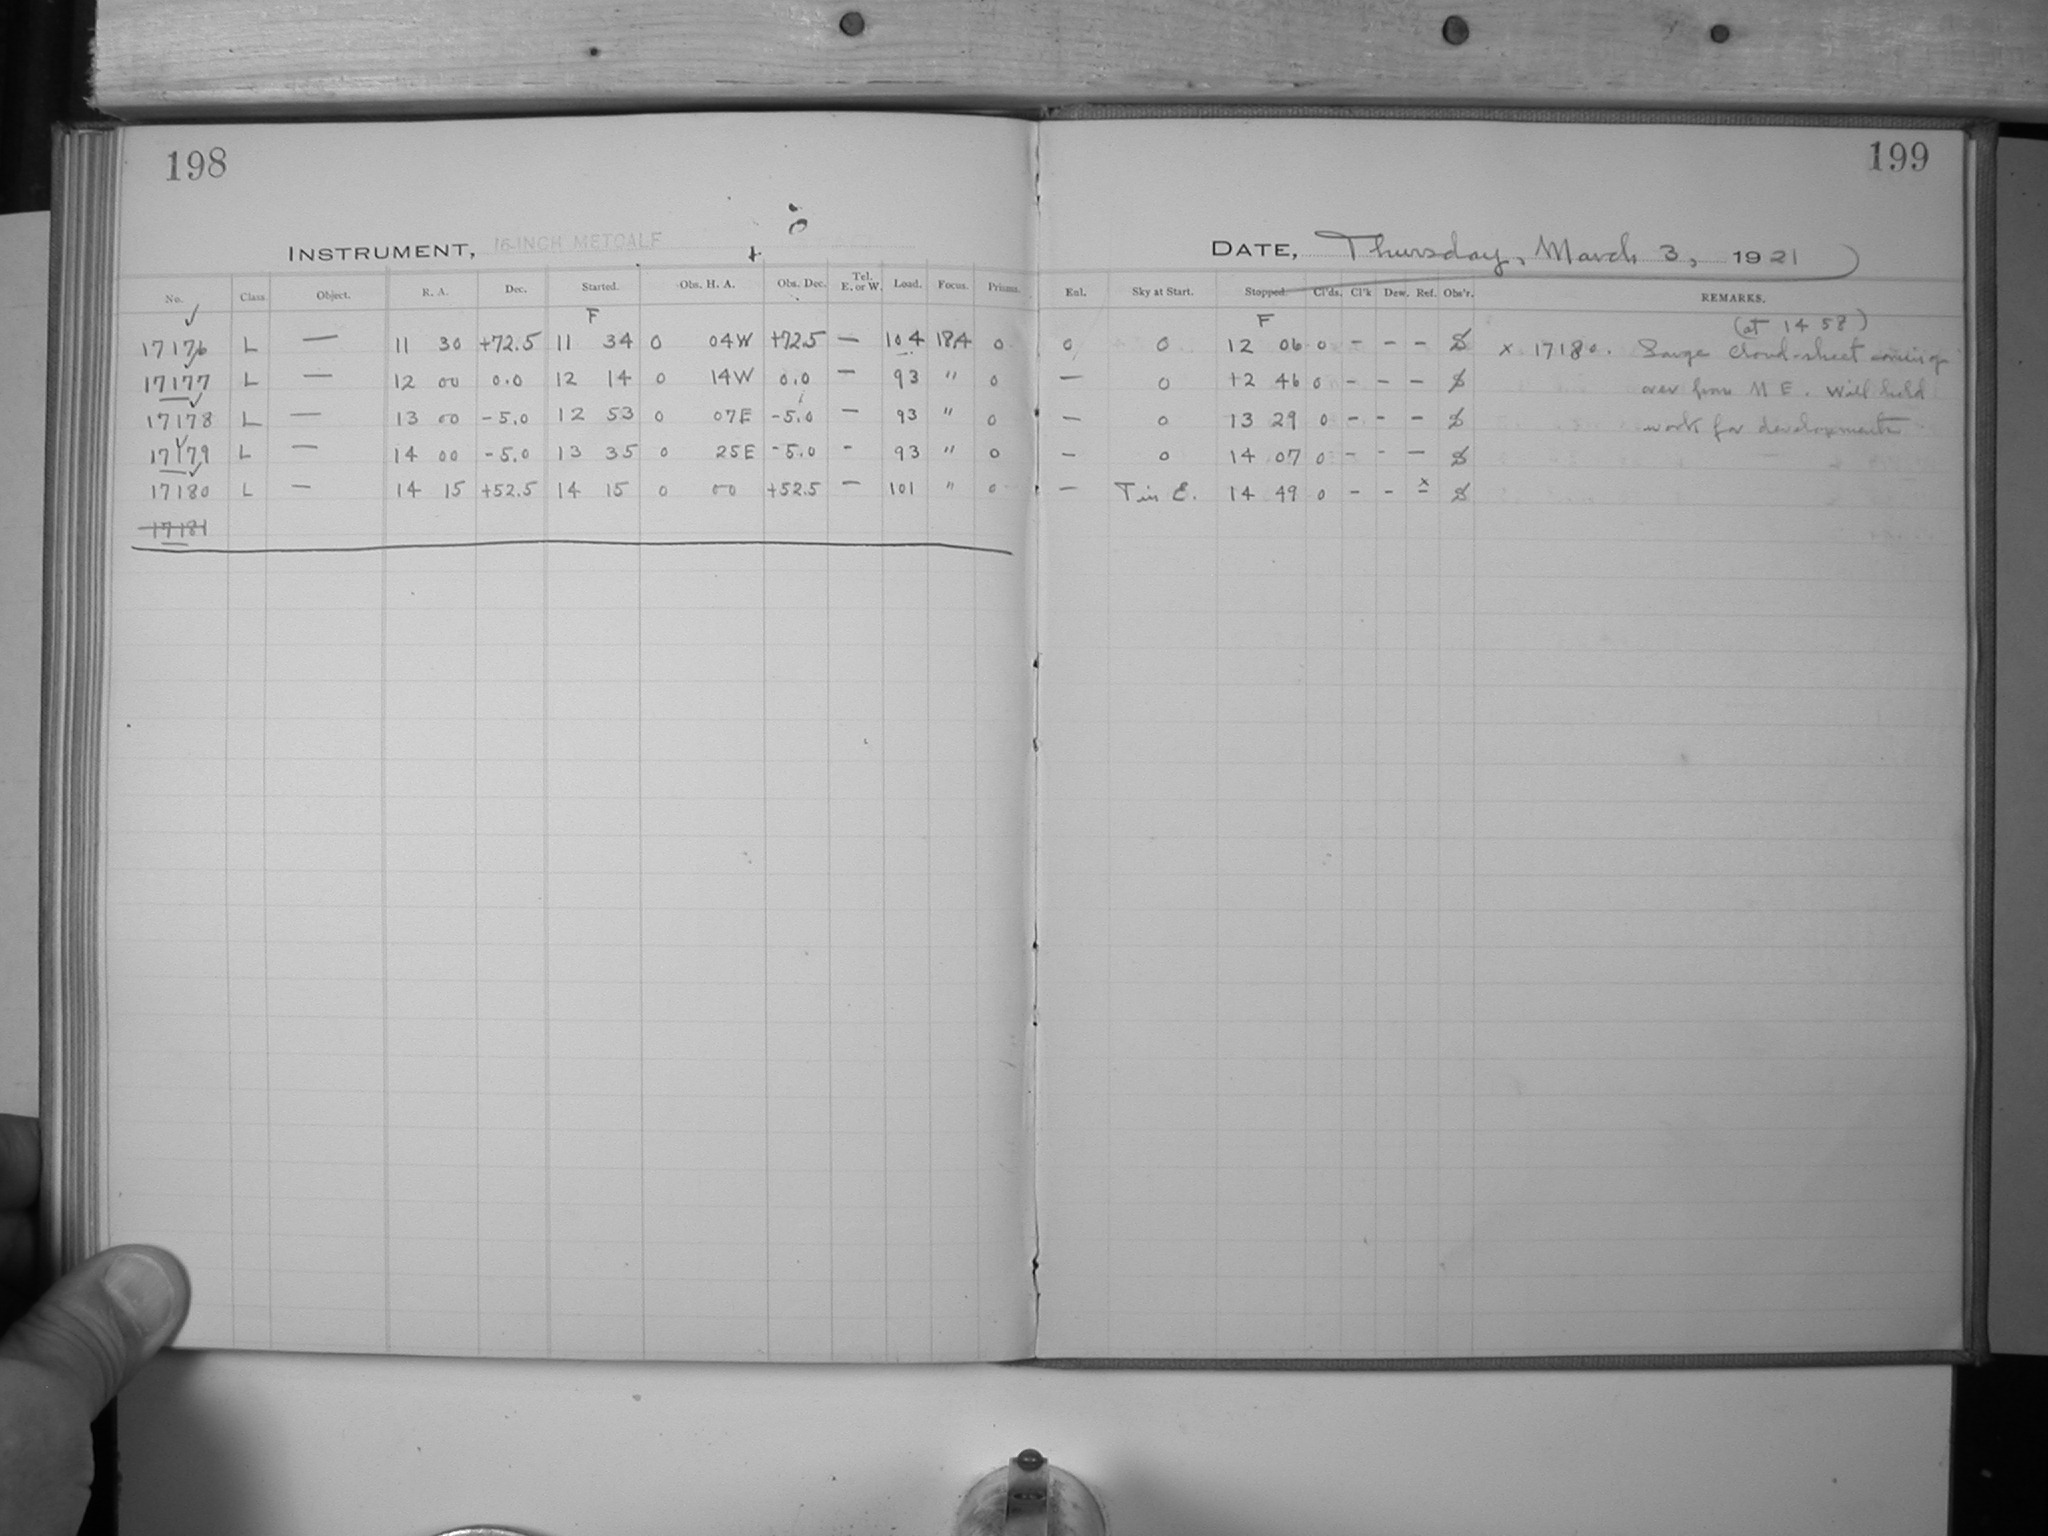 198
INSTRUMENT, 16-INCH METCALF
No. Class. Object. R. A. Dec. Started. Obs. H. A. Obs. Dec. Tel. E. or W. Load. Focus. Prisms.
F
17176 L — 11 30 +72.5 11 34 0 04W +72.5 — 104 18.4 0
17177 L — 12 00 0.0 12 14 0 14W 0.0 — 93 " 0
17178 L — 13 00 -5.0 12 53 0 07E -5.0 — 93 " 0
17179 L — 14 00 -5.0 13 35 0 25E -5.0 - 93 " 0
17180 L — 14 15 +52.5 14 15 0 00 +52.5 — 101 " 0
17181
199
DATE, Thursday, March 3, 1921
Enl. Sky at Start. Stopped. Cl'ds. Cl'k Dew. Ref. Obs'r. REMARKS.
F (at 14 58)
0 0 12 06 0 - - - x 17180. Large cloud-sheet coming
— 0 12 46 0 - - - over from N E. Will hold
— 0 13 29 0 - - - work for developments
— 0 14 07 0 - - —
— T in E. 14 49 0 - - x